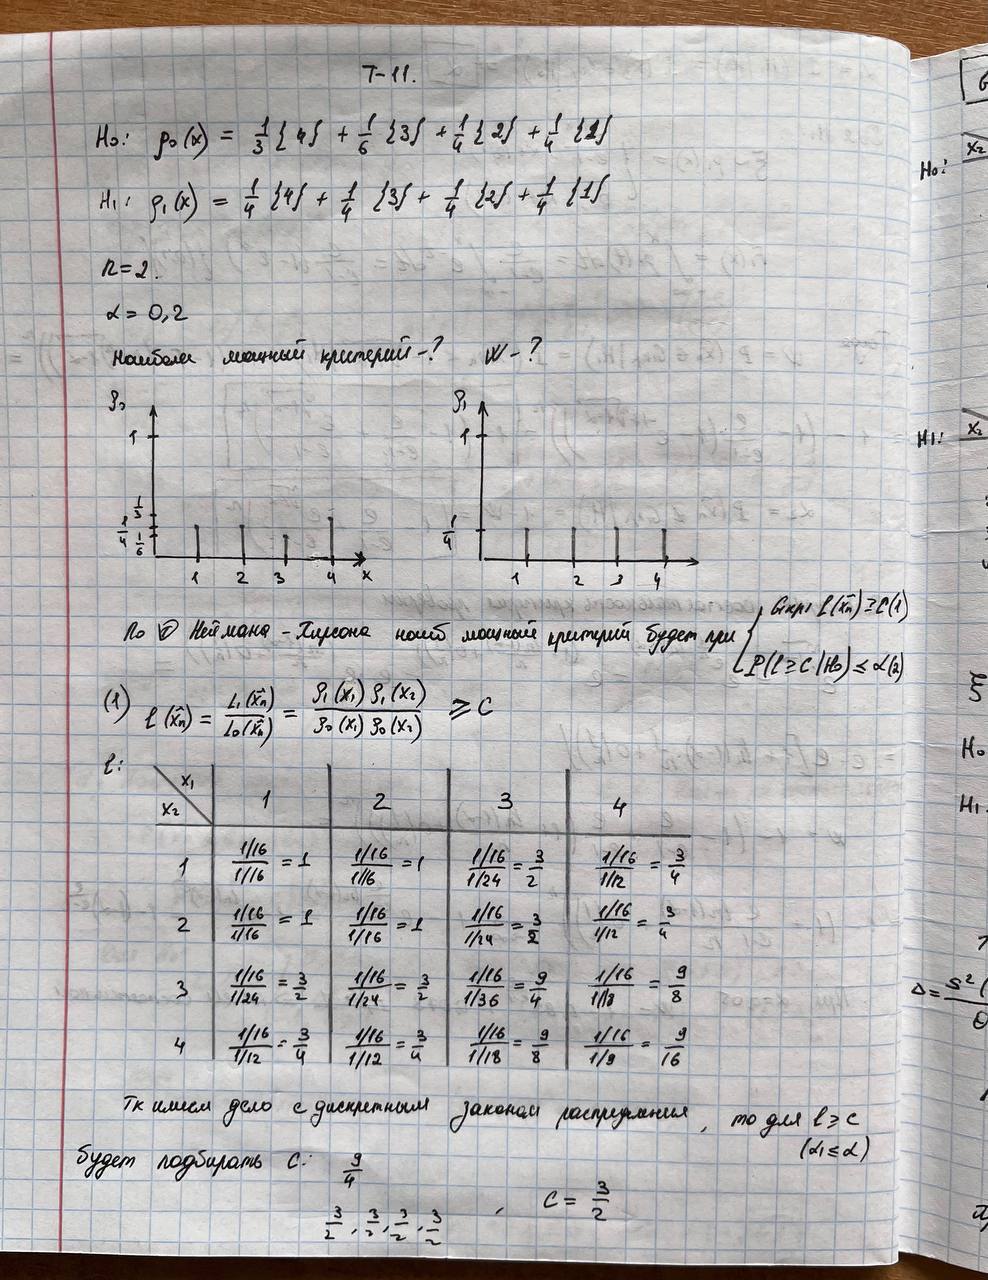 T-11.
H₀: ρ₀(x) = 1/3 {4} + 1/6 {3} + 1/4 {2} + 1/4 {1}
H₁: ρ₁(x) = 1/4 {4} + 1/4 {3} + 1/4 {2} + 1/4 {1}
n=2.
α = 0,2
Наиболее мощный критерий -? W -?
ρ₀ ρ₁
1 1
1/3
1/4 1/6 1/4
1 2 3 4 x 1 2 3 4
По Т Неймана - Пирсона наиб мощный критерий будет при { Gкр: l(x⃗n) ≥ C (1)
P(l ≥ C | H₀) ≤ α (2)
(1) l(x⃗n) = L₁(x⃗n)/L₀(x⃗n) = ρ₁(x₁) ρ₁(x₂)/ρ₀(x₁) ρ₀(x₂) ≥ C
l:
x₂ \ x₁ 1 2 3 4
1 (1/16)/(1/16) = 1 (1/16)/(1/16) = 1 (1/16)/(1/24) = 3/2 (1/16)/(1/12) = 3/4
2 (1/16)/(1/16) = 1 (1/16)/(1/16) = 1 (1/16)/(1/24) = 3/2 (1/16)/(1/12) = 3/4
3 (1/16)/(1/24) = 3/2 (1/16)/(1/24) = 3/2 (1/16)/(1/36) = 9/4 (1/16)/(1/18) = 9/8
4 (1/16)/(1/12) = 3/4 (1/16)/(1/12) = 3/4 (1/16)/(1/18) = 9/8 (1/16)/(1/9) = 9/16
Тк имеем дело с дискретным законом распределения, то для l ≥ c
(α₁ ≤ α)
будет подбирать C: 9/4
3/2, 3/2, 3/2, 3/2 , C = 3/2
x₂
H₀:
H₁:
x₂
ξ
H₀
H₁.